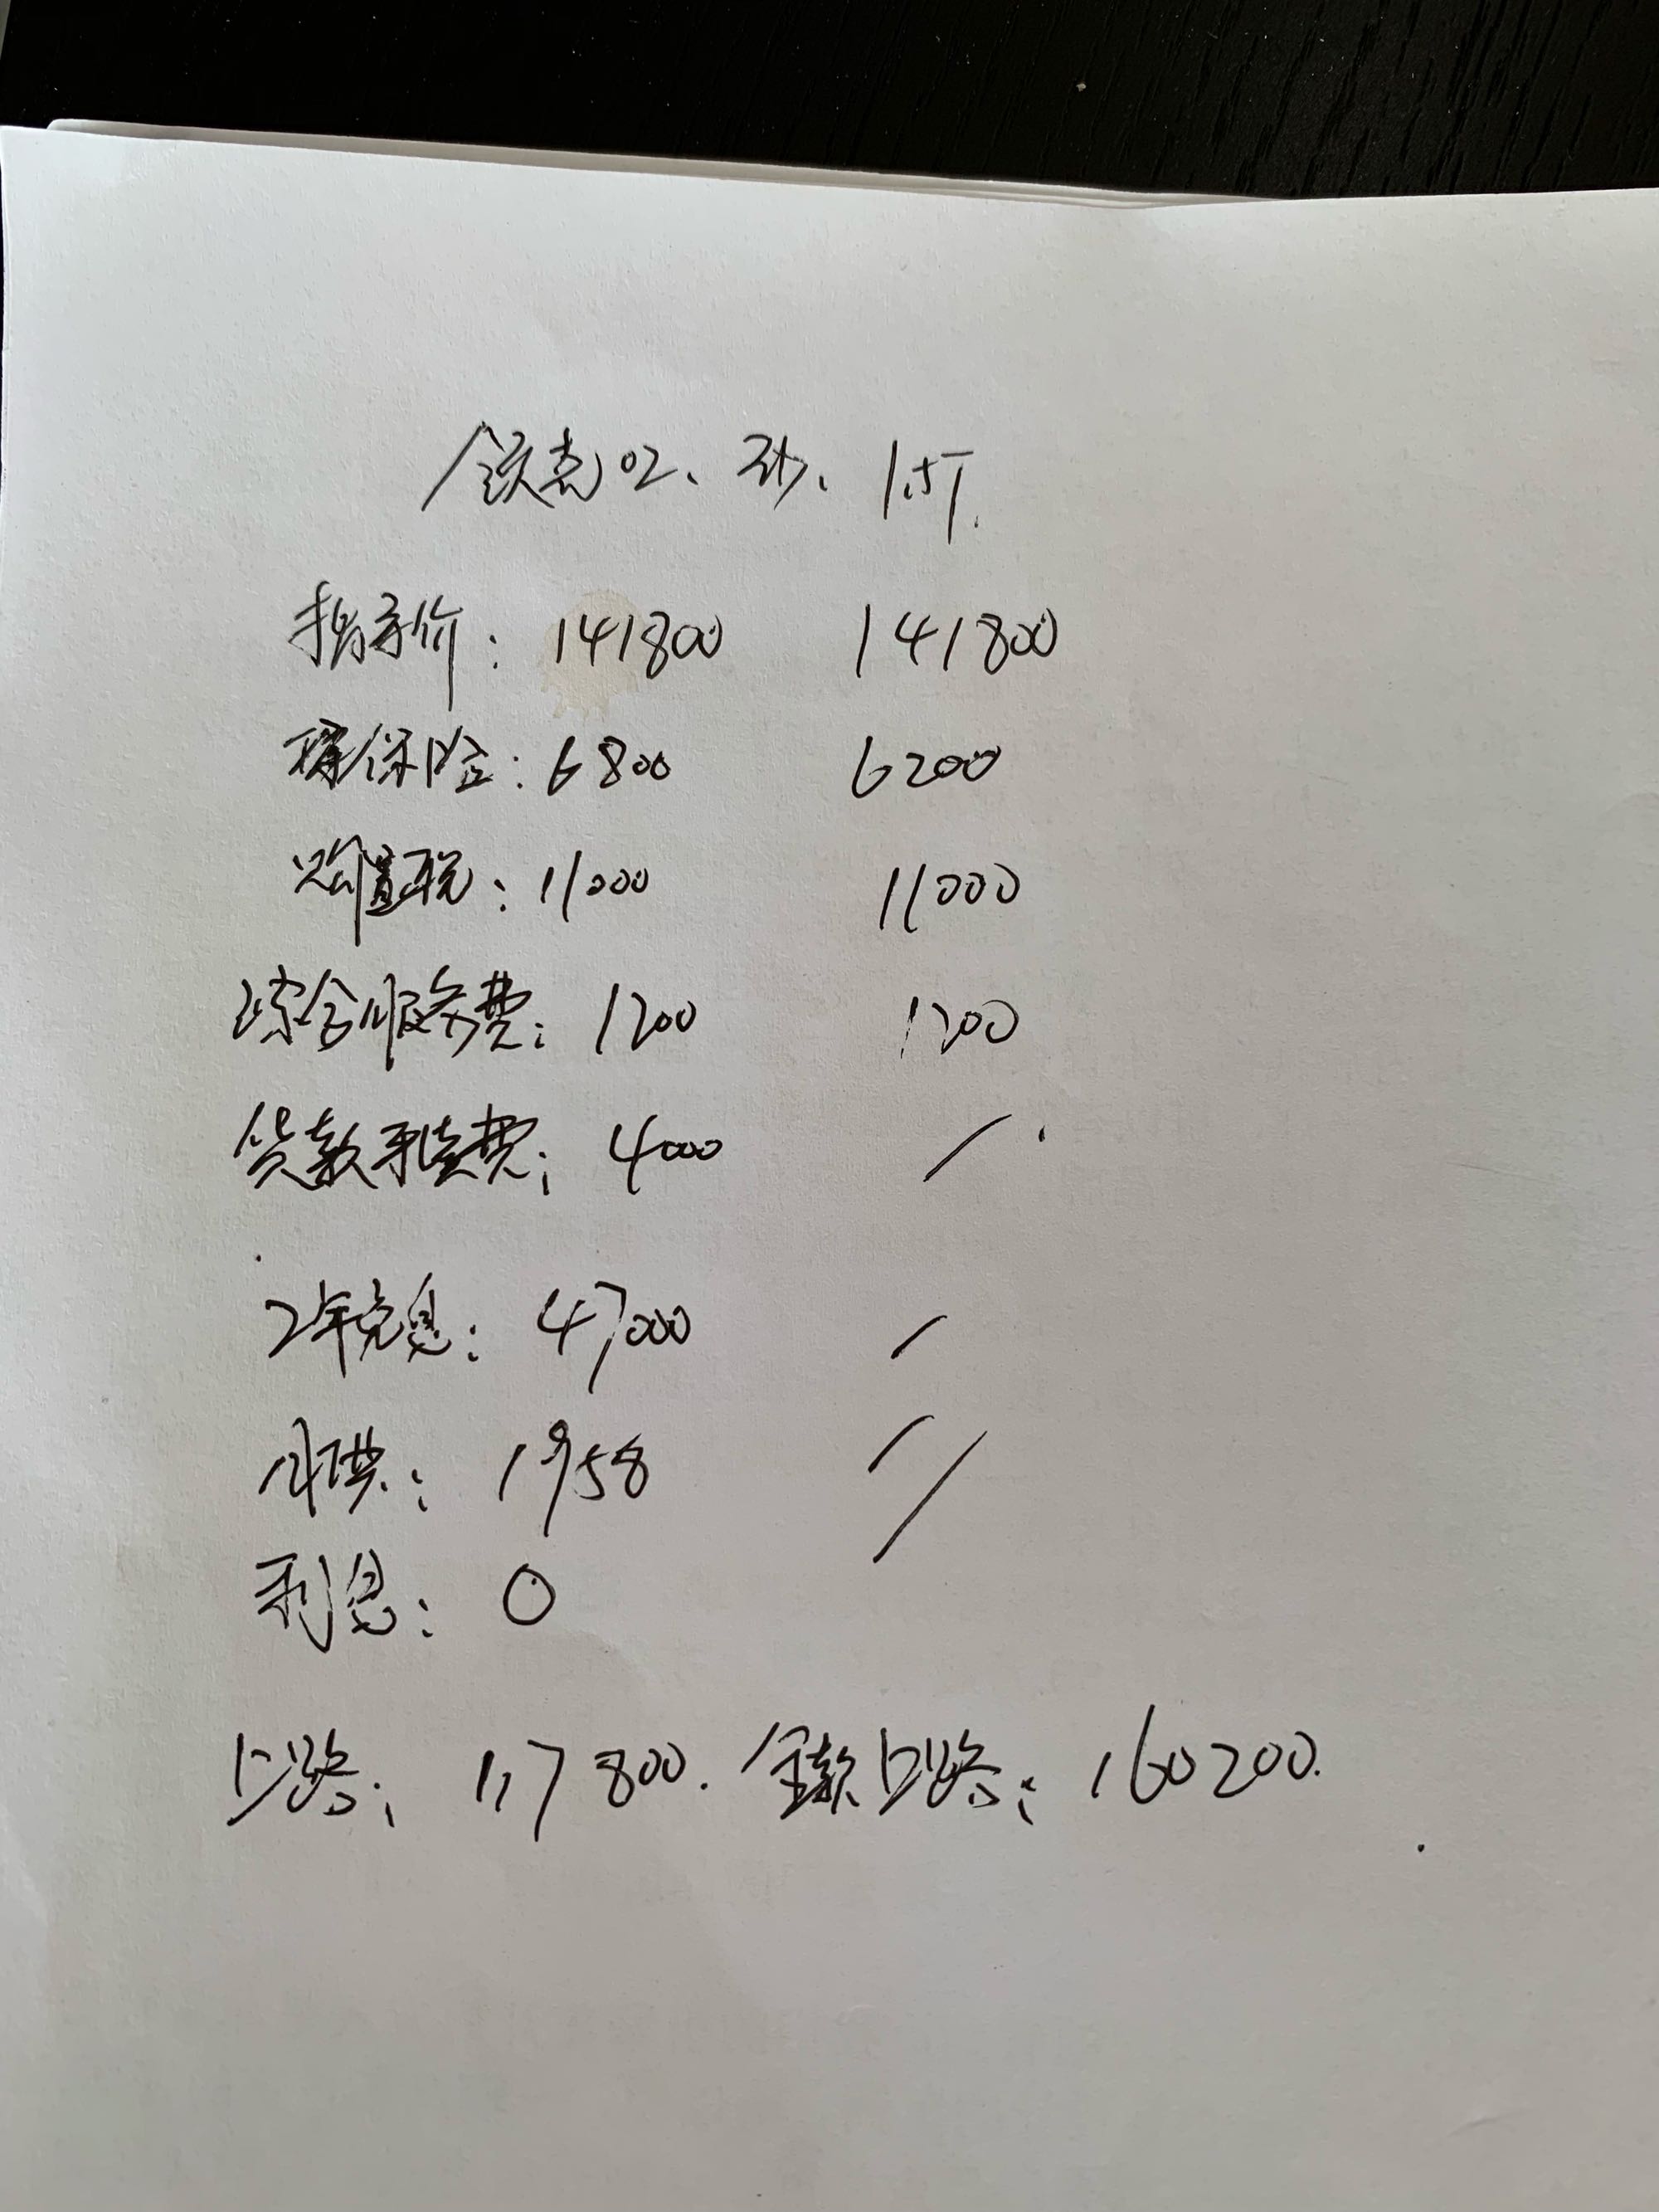 领克02、劲、1.5T.
指导价：141800 141800
保险：6800 6200
购置税：11000 11000
综合服务费：1200 1200
贷款手续费：4000 /
2年免息：47000 /
月供：1958 /
利息：0 /
上路：117800. 全款上路：160200.